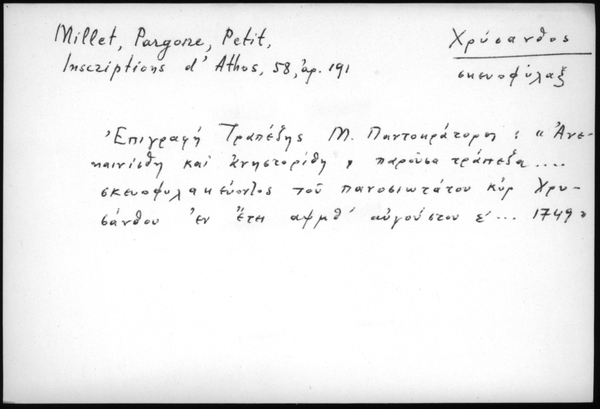 Millet, Pargoire, Petit,
Inscriptions d'Athos, 58, ἀρ. 191
Χρύσανθος
σκευοφύλαξ
Ἐπιγραφή Τραπέζης Μ. Παντοκράτορος: «Ἀνε-
καινίσθη καί ἀνηστορίθη ἡ παροῦσα τράπεζα ....
σκευοφυλακεύοντος τοῦ πανοσιωτάτου κύρ Χρυ-
σάνθου ἐν ἔτει αψμθ´ αὐγούστου ε´... 1749»